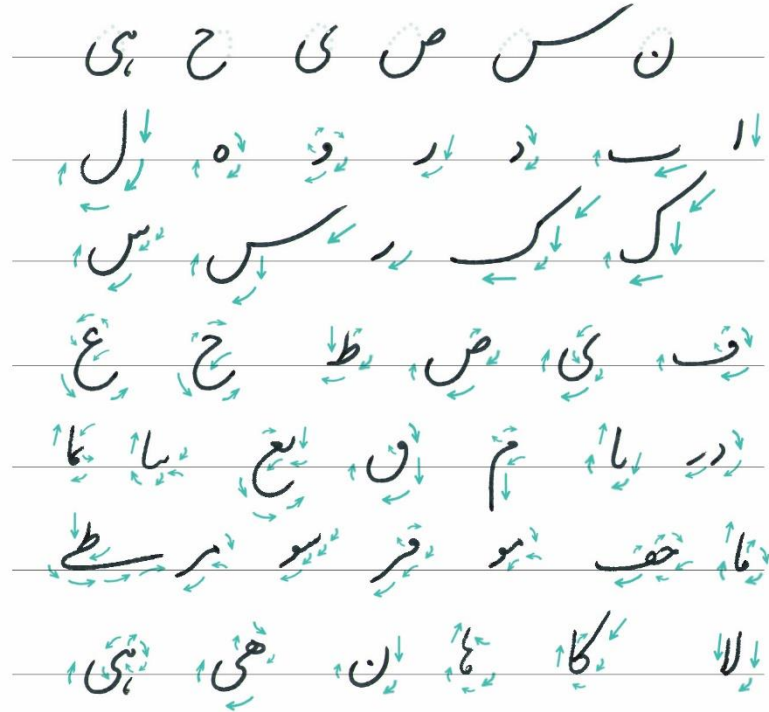 ن س ص ی ح ہی
ا ب د ر و ہ ل
ک ک ر س س
ف ی ص ط ح ع
در با م ق بع سا کا
ما حف مو فر سو مر طے
لا کا ہا ن ھی ہی